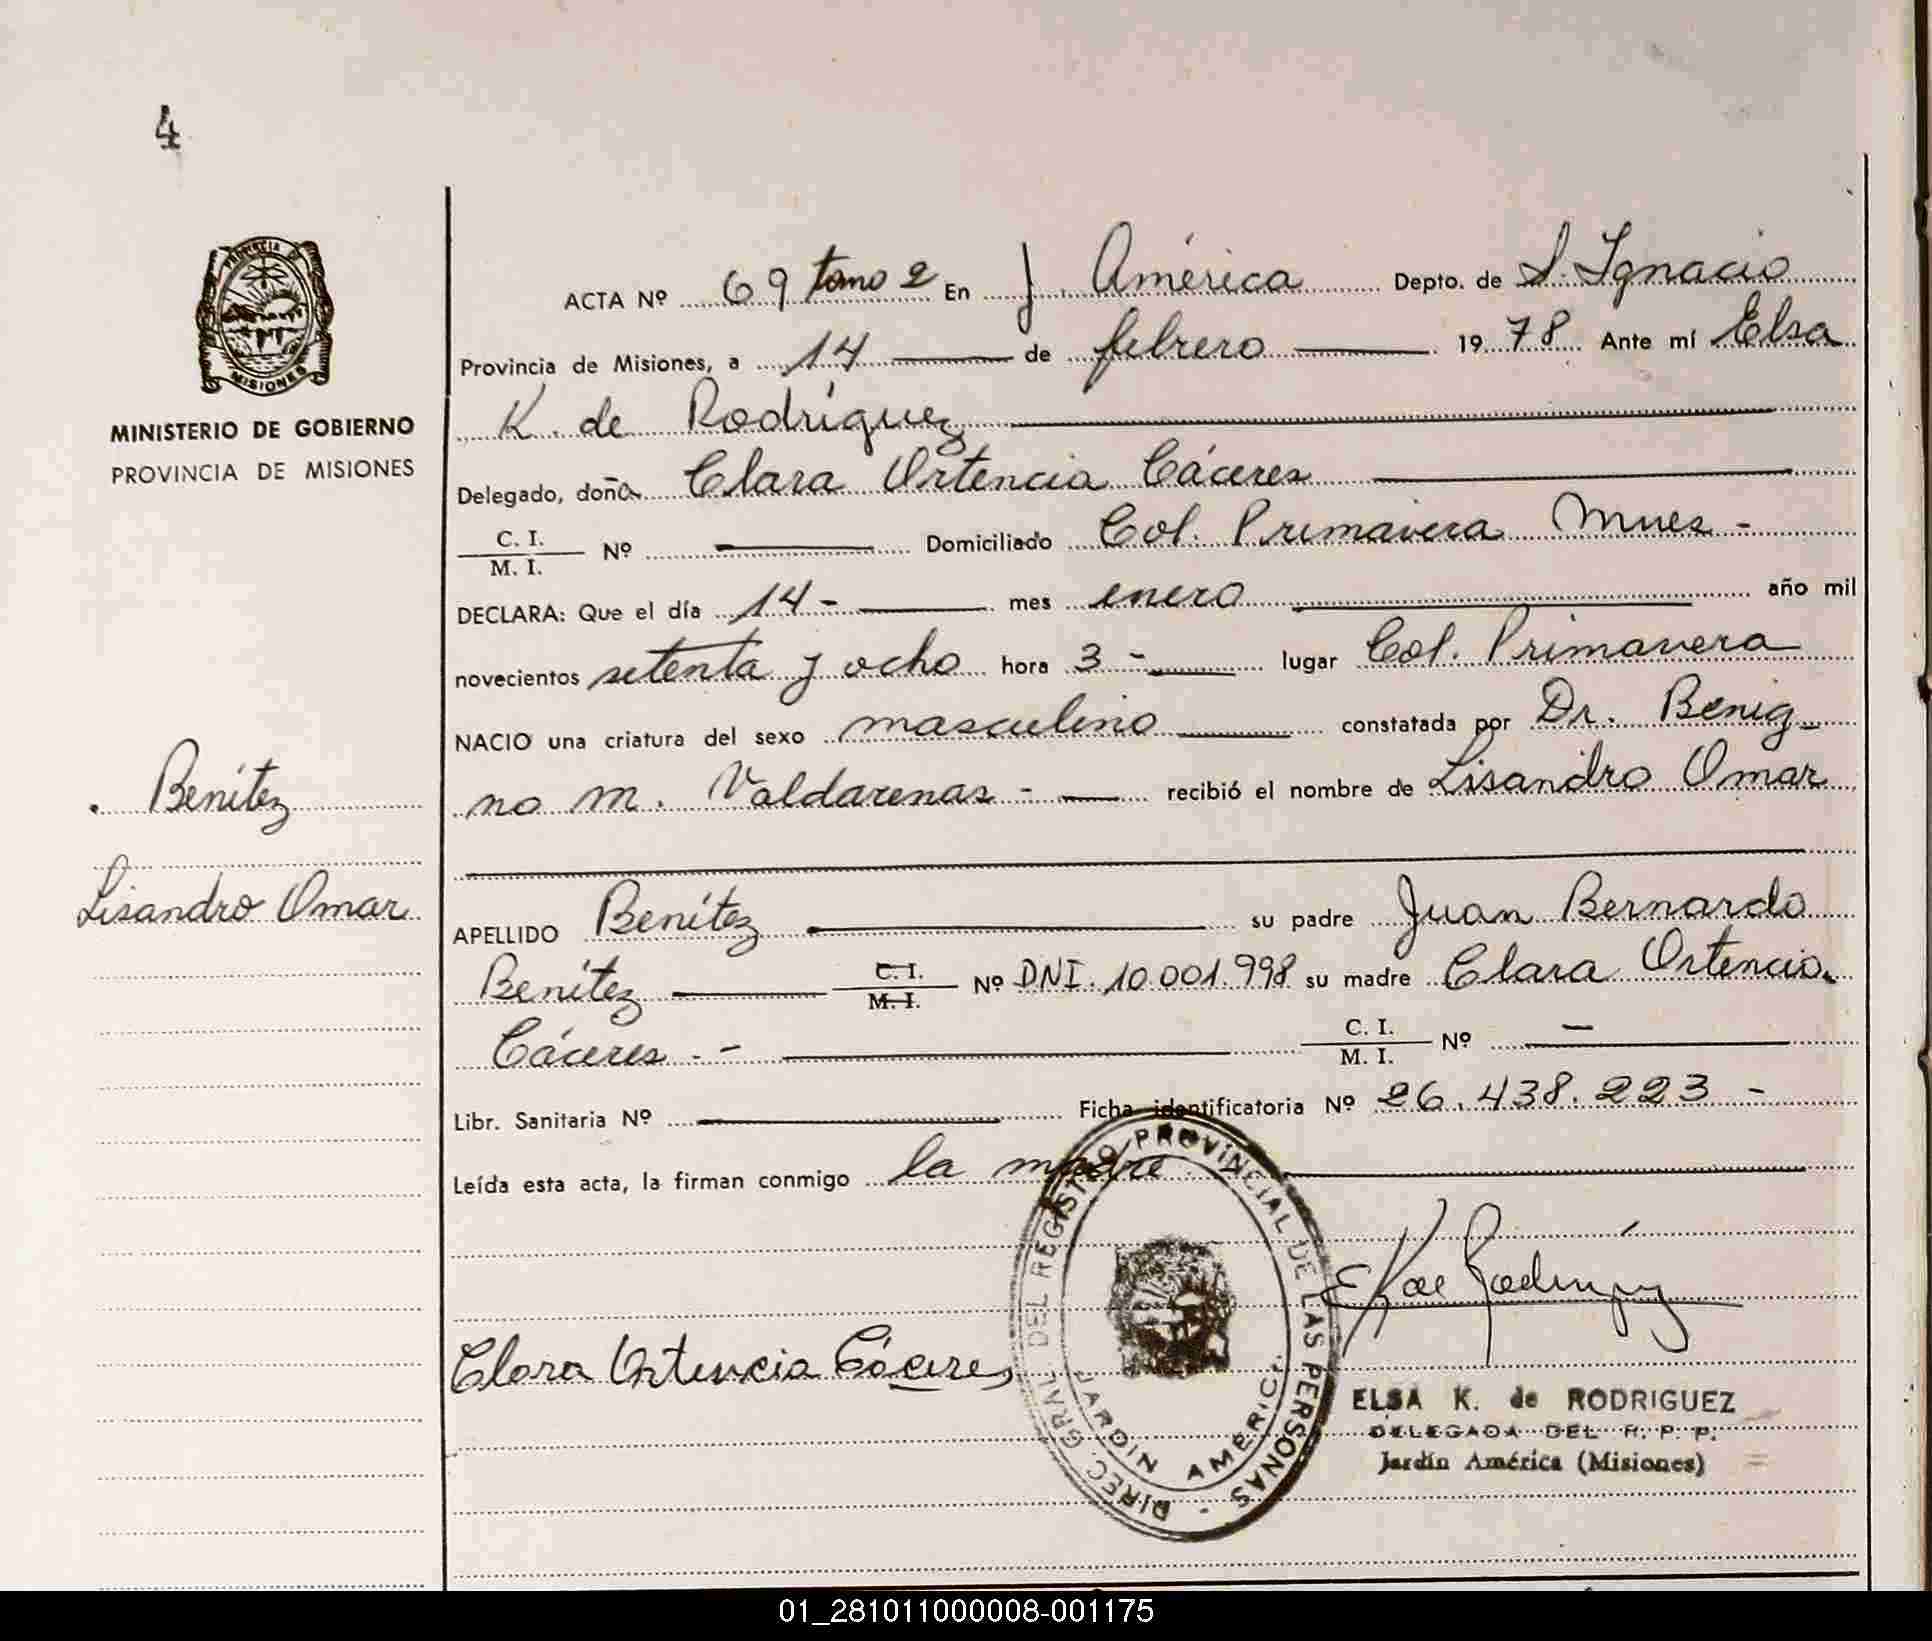 4
PROVINCIA DE
MISIONES
MINISTERIO DE GOBIERNO
PROVINCIA DE MISIONES
Benítez
Lisandro Omar
ACTA Nº 69 tomo 2 En J. América Depto. de S. Ignacio
Provincia de Misiones, a 14 de febrero 1978 Ante mí Elsa
K. de Rodríguez
Delegado, doña Clara Ortencia Cáceres
C. I.
M. I. Nº — Domiciliado Col. Primavera Mnes -
DECLARA: Que el día 14- mes enero año mil
novecientos setenta y ocho hora 3 - lugar Col. Primavera
NACIO una criatura del sexo masculino constatada por Dr. Benig-
no M. Valdarenas - recibió el nombre de Lisandro Omar
APELLIDO Benítez su padre Juan Bernardo
Benítez C. I. M. I. Nº DNI. 10.001.998 su madre Clara Ortencia
Cáceres - - C. I. M. I. Nº —
Libr. Sanitaria Nº Ficha identificatoria Nº 26.438.223 -
Leída esta acta, la firman conmigo la madre
DIREC. GRAL. DEL REGISTRO PROVINCIAL DE LAS PERSONAS -
JARDIN AMERICA
E K de Rodríguez
Clara Ortencia Cáceres
ELSA K. de RODRIGUEZ
DELEGADA DEL R. P. P.
Jardín América (Misiones)
01_281011000008-001175